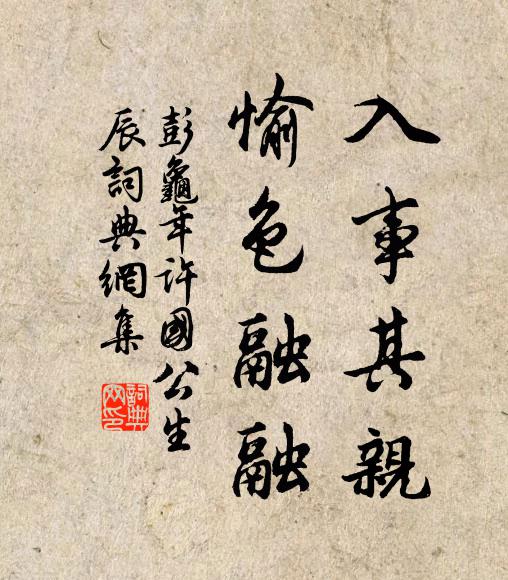 入事其親
愉色融融
彭龜年許國公生
辰詞典網集
詞典
网印